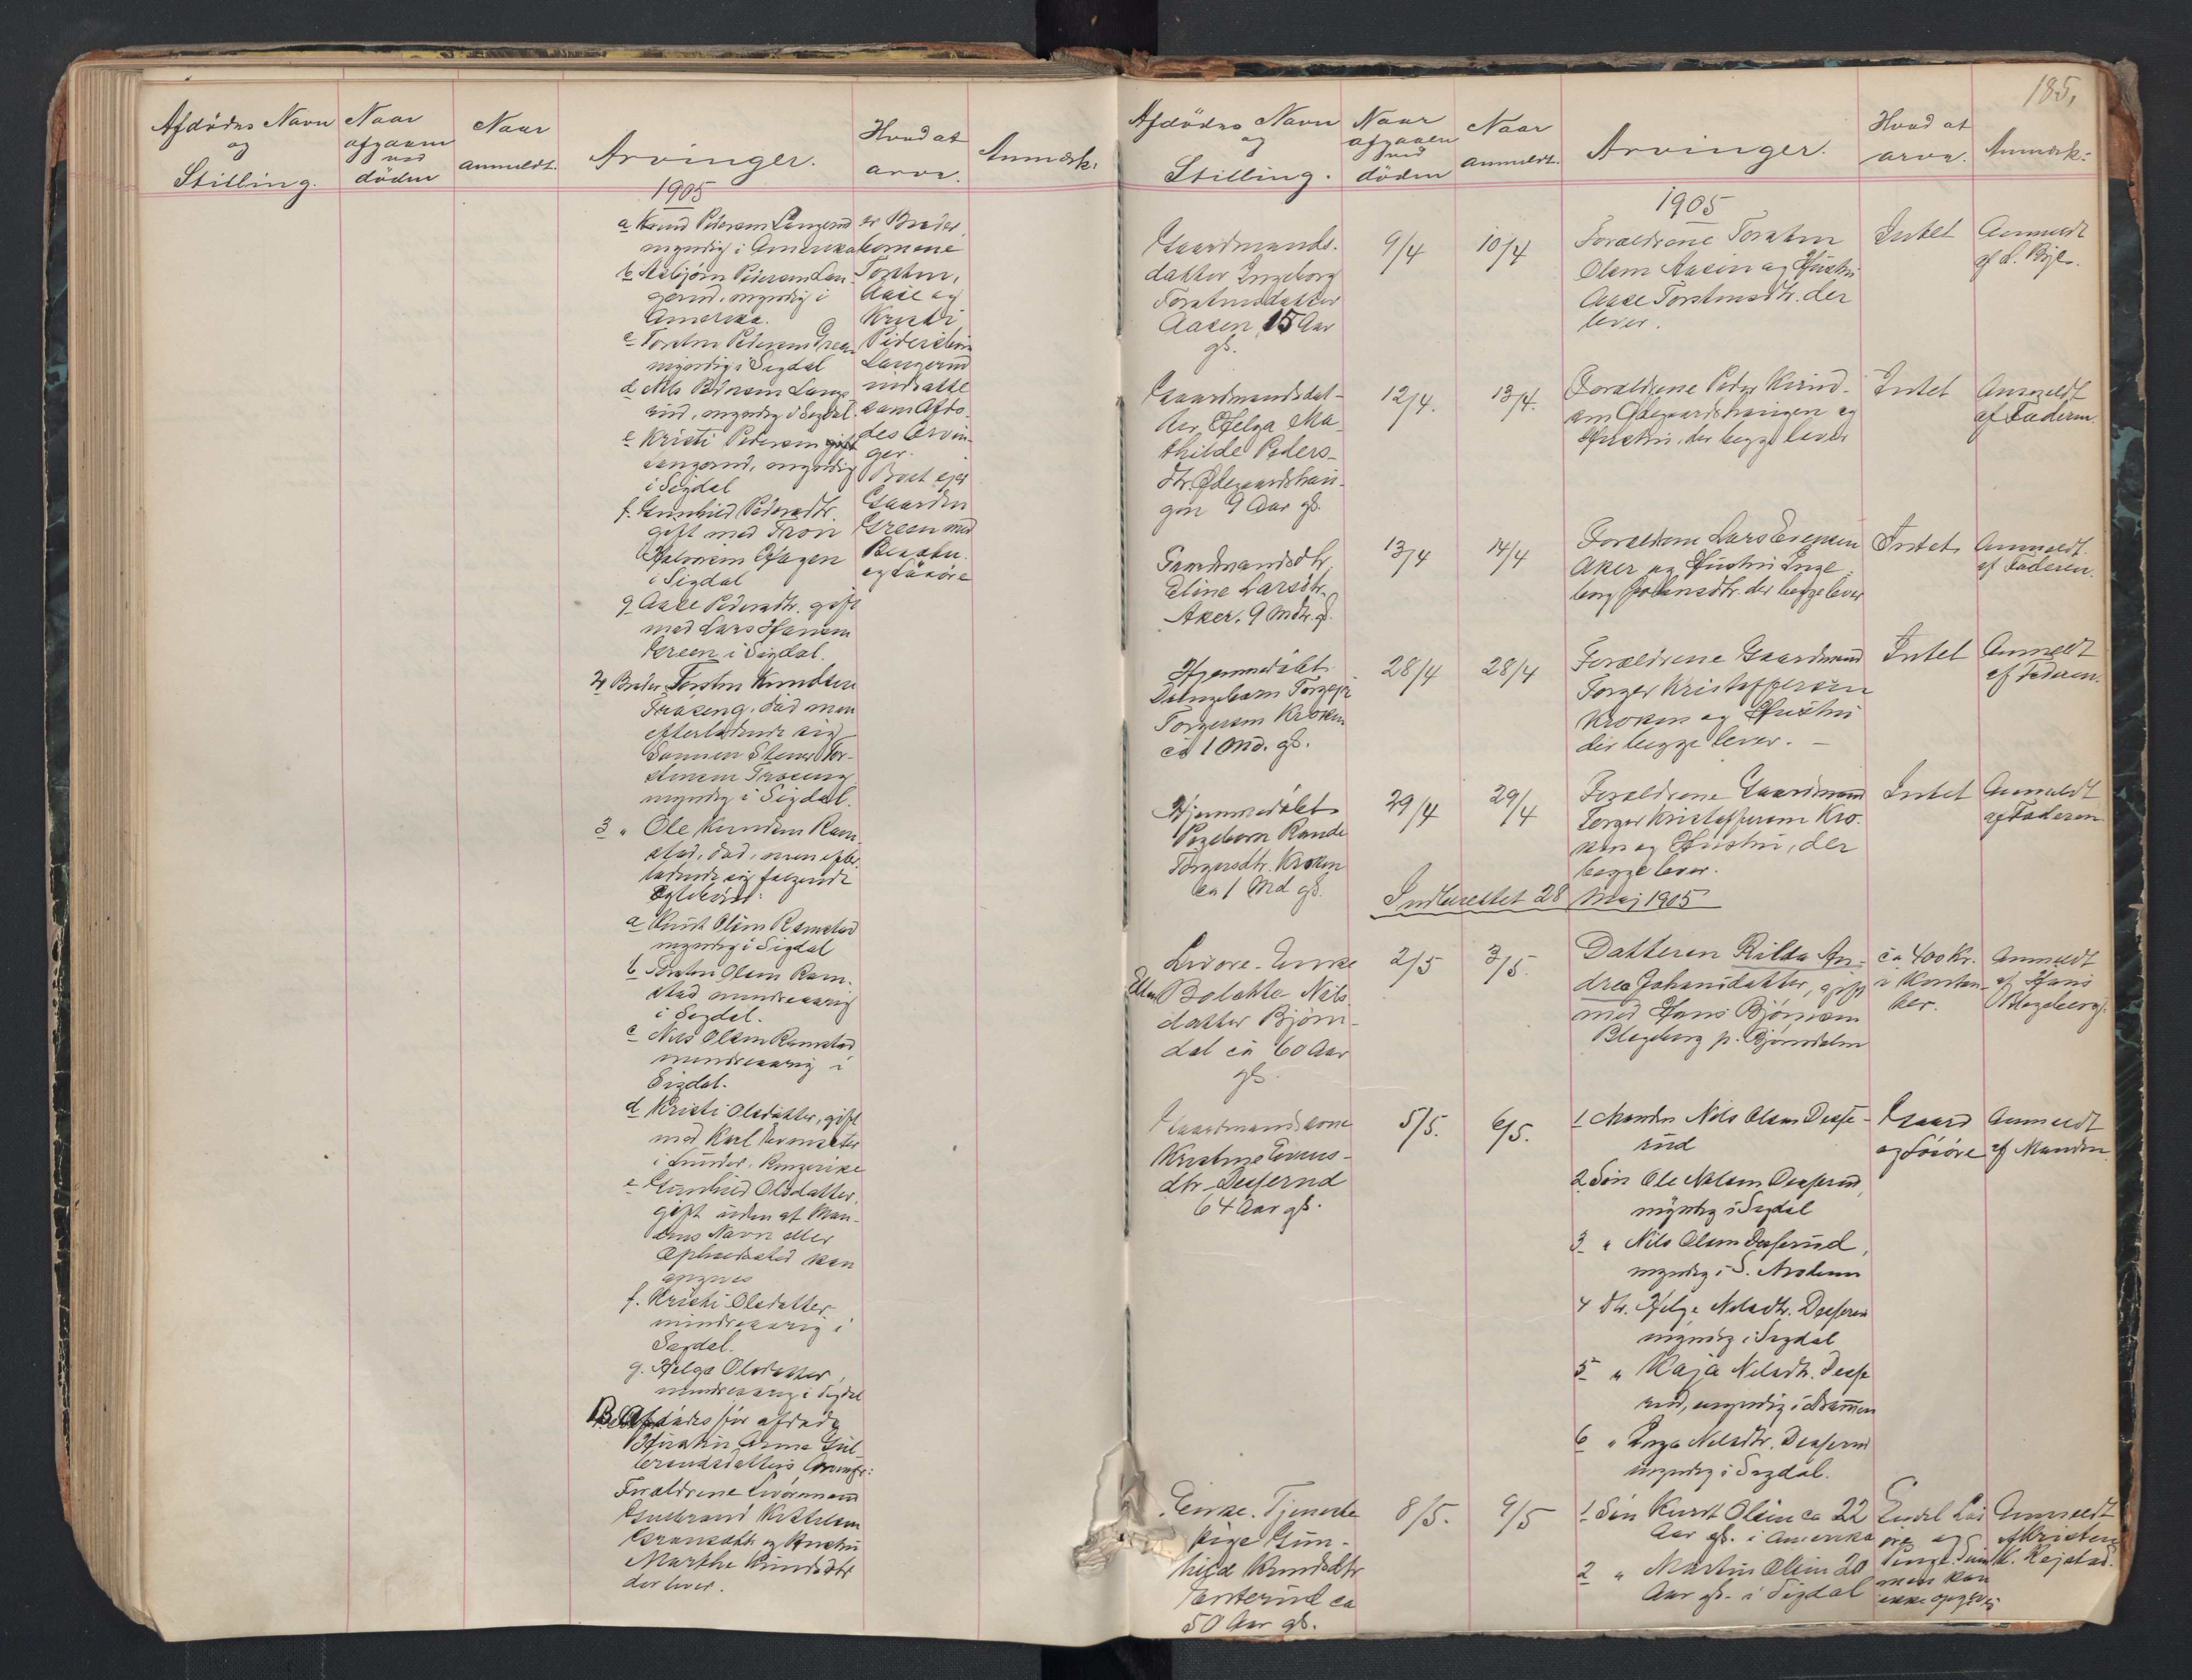 Afdödes Navn
og
Stilling.
Naar
afgaaen
ved
döden
Naar
anmeldt.
Arvinger.
Hvad at
arve.
Anmærk:
1905
a Knud Pedersen Langerud
myndig i Amerika
b Asbjørn Pedersen Lan-
gerud, myndig i
Amerika.
c Torsten Pedersen Green
myndig i Sigdal
d Nils Pedersen Lange
rud, myndig i Sigdal.
e Kristi Pedersen gift
Langerud, myndig
i Sigdal
f. Gunhild Pedersdtr.
gift med Tron
Halvorsen Hagen
i Sigdal
g Aase Pedersdtr. gift
med Lars Hansen
Green i Sigdal.
2 Broder Torsten Knudsen
Fraseng, død men
efterladende sig
Sønnen Stener Tor-
stensen Fraseng
myndig i Sigdal.
3 " Ole Knudsen Ram-
stad, død, men efter-
ladende sig følgende
a Knut Olsen Ramstad
myndig i Sigdal
b Torsten Olsen Ram-
stad mindreaarig
i Sigdal.
c Nils Olsen Ramstad
mindreaarig i
Sigdal.
d Kristi Olsdatter, gift
med Karl
i Lunder, Ringerike
e Gunhild Olsdatter,
gift uden at Man-
dens Navn eller
Opholdssted kan
opgives
f. Kristi Olsdatter
mindreaarig i
Sigdal.
g. Helga Olsdatter,
mindreaarig i Sigdal
B. Afdödes før afdøde
Hustru Anna Gul
brandsdatters Arvinger:
Forældrene
Gulbrand Kittelsen
og Hustru
Marthe Knudsdtr
der lever.
er Broder
børnene
Torsten,
Aase og
Kristi
Pedersbørn
Langerud
indsatte
som Afdø-
des Arvin-
ger.
Boet ejer
Gaarden
Green med
Besætn.
og Løsøre
185.
Afdödes Navn
og
Stilling.
Naar
afgaaen
ved
döden
Naar
anmeldt.
Arvinger.
Hvad at
arve.
Anmærk:
1905
Gaardmands-
datter Ingeborg
Torstensdatter
Aasen 15 Aar
gl.
9/4
10/4
Forældrene Torsten
Olsen Aasen og Hustru
Aase Torstensdtr. der
lever.
Intet
Anmeldt
af
Gaardmandsdat-
ter, Helga Ma-
thilde Peders-
dtr. Ødegaardshau-
gen 9 Aar gl.
12/4.
13/4.
Forældrene Peder Knud-
sen Ødegaardshaugen og
Hustru, der begge lever
Intet
Anmeldt
af Faderen.
Gaardmandsdtr.
Eline Larsdtr.
Aker. 9 Mdr. gl.
13/4
14/4
Forældrene Lars Evensen
Aker og Hustru Inge-
borg Johnsdtr. der begge lever
Intet
Anmeldt.
af Faderen.
Hjemmedøbt
Drengebarn Torgeir
Torgersen Kroken
ca 1 Md. gl.
28/4
28/4
Forældrene Gaardmand
Torger Kristoffersen
Kroken og Hustru
der begge lever. —
Intet
Anmeldt
af Faderen.
Hjemmedøbt
Pigebarn Randi
Torgersdtr. Kroken
ca 1 Md gl.
29/4
29/4
Forældrene Gaardmand
Torger Kristoffersen Kro-
ken og Hustru, der
begge lever.
Intet
Anmeldt
af Faderen
Indberettet 28 Maj 1905
Enke
Ellen Bolette Nils
datter Bjørn-
dal ca 60 Aar
gl.
2/5
3/5.
Datteren Rikka An-
drea Johansdatter, gift
med Hans Bjørnsen
Blegeberg p. Bjørndalen
ca 400 Kr.
i Kontan-
ter.
Anmeldt
af Hans
Blegeberg.
Gaardmandskone
Kristine Evens-
dtr. Desserud
64 Aar gl.
5/5.
6/5.
1 Manden Nils Olsen Desse-
rud
2 Søn Ole Nilsen Desserud,
myndig i Sigdal
3 " Nils Olsen Desserud,
myndig i S. Modum
4 Dtr. Helge Nilsdtr. Desserud
myndig i Sigdal
5 " Kaja Nilsdtr. Desse
rud, myndig i Drammen
6 " Inga Nilsdtr. Desserud
myndig i Sigdal.
Gaard
og Løsøre
Anmeldt
af Manden.
Enke. Tjeneste
pige Gun-
hild Knudsdtr
ca
50 Aar gl.
8/5.
9/5
1 Søn Knut Olsen ca 22
Aar gl. i Amerika
2 " Martin Olsen 20
Aar gl. i Sigdal
Endel Løs
øre og
Penge. Sum
men kan
ikke opgives
Anmeldt
af Kristen
K. Rajstad.